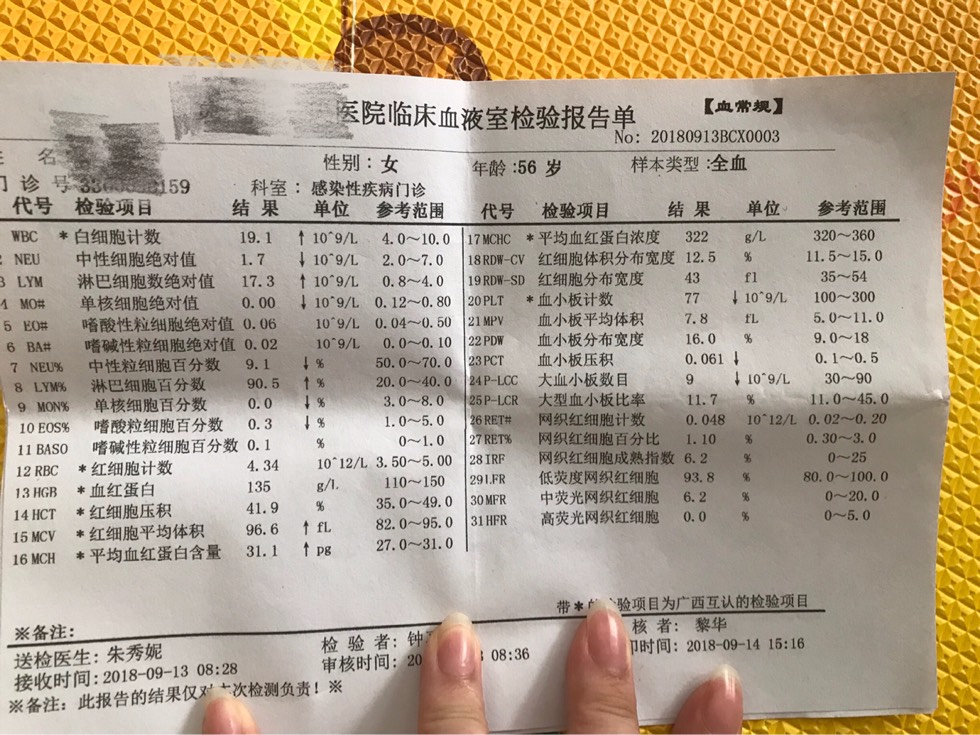 医院临床血液室检验报告单 【血常规】
No: 20180913BCX0003
名 性别：女 年龄:56 岁 样本类型:全血
门诊号 159 科室：感染性疾病门诊
代号 检验项目 结果 单位 参考范围
WBC *白细胞计数 19.1 ↑ 10^9/L 4.0～10.0
2 NEU 中性细胞绝对值 1.7 ↓ 10^9/L 2.0～7.0
3 LYM 淋巴细胞数绝对值 17.3 ↑ 10^9/L 0.8～4.0
4 MO# 单核细胞绝对值 0.00 ↓ 10^9/L 0.12～0.80
5 EO# 嗜酸性粒细胞绝对值 0.06 10^9/L 0.04～0.50
6 BA# 嗜碱性粒细胞绝对值 0.02 10^9/L 0.0～0.10
7 NEU% 中性粒细胞百分数 9.1 ↓ % 50.0～70.0
8 LYM% 淋巴细胞百分数 90.5 ↑ % 20.0～40.0
9 MON% 单核细胞百分数 0.0 ↓ % 3.0～8.0
10 EOS% 嗜酸粒细胞百分数 0.3 ↓ % 1.0～5.0
11 BASO 嗜碱性粒细胞百分数 0.1 % 0～1.0
12 RBC *红细胞计数 4.34 10^12/L 3.50～5.00
13 HGB *血红蛋白 135 g/L 110～150
14 HCT *红细胞压积 41.9 % 35.0～49.0
15 MCV *红细胞平均体积 96.6 ↑ fL 82.0～95.0
16 MCH *平均血红蛋白含量 31.1 ↑ pg 27.0～31.0
代号 检验项目 结果 单位 参考范围
17 MCHC *平均血红蛋白浓度 322 g/L 320～360
18 RDW-CV 红细胞体积分布宽度 12.5 % 11.5～15.0
19 RDW-SD 红细胞分布宽度 43 fl 35～54
20 PLT *血小板计数 77 ↓ 10^9/L 100～300
21 MPV 血小板平均体积 7.8 fL 5.0～11.0
22 PDW 血小板分布宽度 16.0 % 9.0～18
23 PCT 血小板压积 0.061 ↓ 0.1～0.5
24 P-LCC 大血小板数目 9 ↓ 10^9/L 30～90
25 P-LCR 大型血小板比率 11.7 % 11.0～45.0
26 RET# 网织红细胞计数 0.048 10^12/L 0.02～0.20
27 RET% 网织红细胞百分比 1.10 % 0.30～3.0
28 IRF 网织红细胞成熟指数 6.2 % 0～25
29 LFR 低荧度网织红细胞 93.8 % 80.0～100.0
30 MFR 中荧光网织红细胞 6.2 % 0～20.0
31 HFR 高荧光网织红细胞 0.0 % 0～5.0
带* 检验项目为广西互认的检验项目
※备注：
送检医生：朱秀妮 检验者：钟 核者：黎华
接收时间:2018-09-13 08:28 审核时间: 20 08:36 时间: 2018-09-14 15:16
※备注：此报告的结果仅对本次检测负责！※